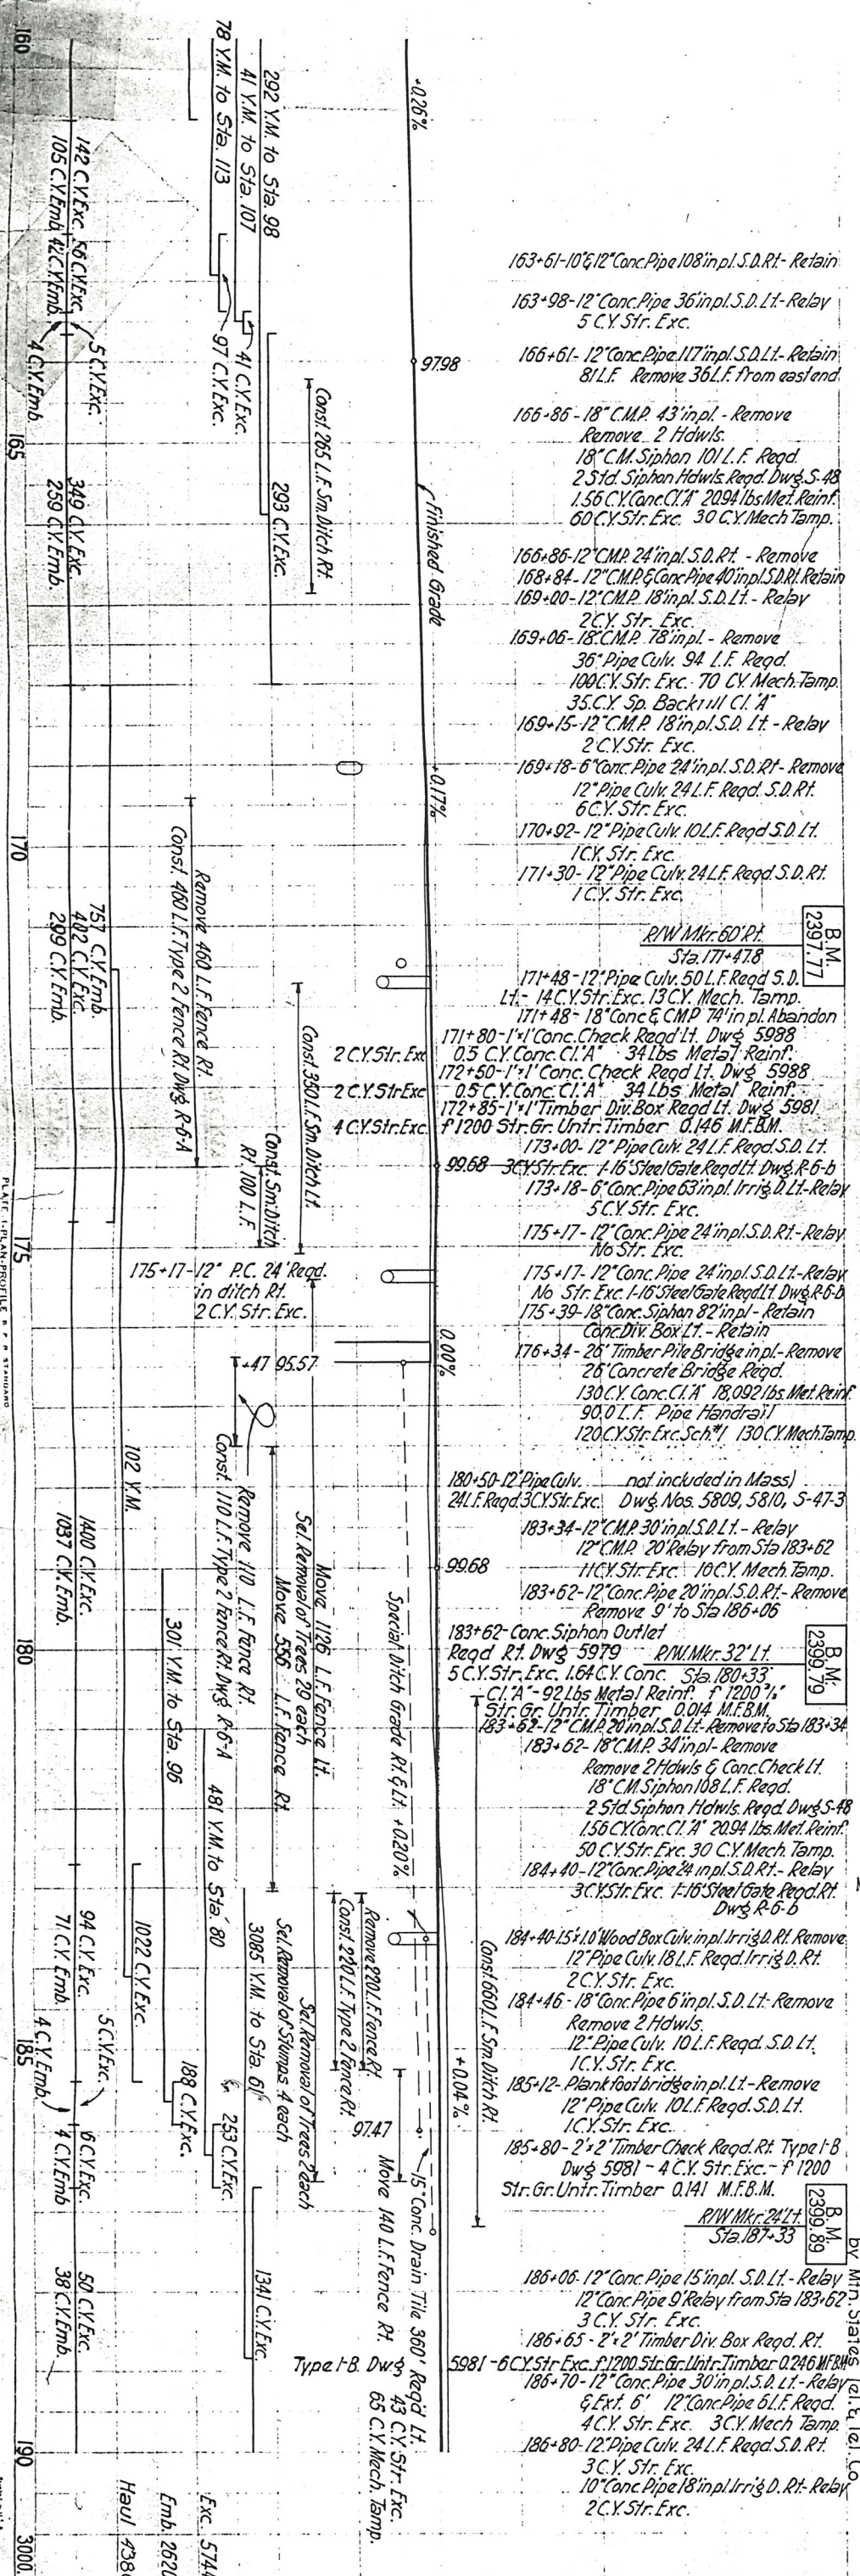 163+61-10"&12"Conc.Pipe 108'inpl.S.D.Rt.-Retain
163+98-12"Conc.Pipe 36'inpl.S.D.Lt.-Relay
5 C.Y. Str. Exc.
166+61-12"Conc.Pipe 117'inpl.S.D.Lt.-Retain
81 L.F. Remove 36 L.F. from east end
166+86-18"C.M.P. 43'inpl.-Remove
Remove 2 Hdwls.
18"C.M.Siphon 101 L.F. Reqd.
2 Std. Siphon Hdwls. Reqd. Dwg. S-48
1.56 C.Y. Conc.Cl."A" 209.4 lbs Met. Reinf.
60 C.Y. Str. Exc. 30 C.Y. Mech Tamp.
166+86-12"C.M.P. 24'inpl.S.D.Rt.-Remove
168+84-12"C.M.P.&Conc Pipe 40'inpl.S.D.Rt.Retain
169+00-12"C.M.P. 18'inpl.S.D.Lt.-Relay
2 C.Y. Str. Exc.
169+06-18"C.M.P. 78'inpl-Remove
36" Pipe Culv. 94 L.F. Reqd.
100 C.Y. Str. Exc. 70 C.Y. Mech. Tamp.
35 C.Y. Sp. Backfill Cl. "A"
169+15-12"C.M.P. 18'inpl.S.D. Lt.-Relay
2 C.Y. Str. Exc.
169+18-6"Conc.Pipe 24'inpl.S.D.Rt-Remove
12" Pipe Culv. 24 L.F. Reqd. S.D.Rt.
6 C.Y. Str. Exc.
170+92-12"Pipe Culv. 10 L.F. Reqd S.D. Lt.
1 C.Y. Str. Exc.
171+30-12"Pipe Culv. 24 L.F. Reqd S.D. Rt.
1 C.Y. Str. Exc.
B.M.
2397.77
R/W Mkr. 60' Rt.
Sta. 171+47.8
171+48-12"Pipe Culv. 50 L.F. Reqd S.D.
Lt.-14 C.Y. Str. Exc. 13 C.Y. Mech. Tamp.
171+48-18"Conc & CMP 74'in pl. Abandon
171+80-1'x1'Conc.Check Reqd Lt. Dwg 5988
2 C.Y. Str. Exc 0.5 C.Y. Conc.Cl."A" 34 Lbs Metal Reinf.
172+60-1'x1'Conc. Check Reqd Lt. Dwg 5988
2 C.Y. Str Exc 0.5 C.Y. Conc.Cl."A" 34 Lbs Metal Reinf.
172+85-1'x1'Timber Div.Box Reqd Lt. Dwg 5981
4 C.Y. Str. Exc. f 1200 Str. Gr. Untr. Timber 0.146 M.F.B.M.
173+00-12"Pipe Culv. 24 L.F. Reqd. S.D. Lt.
3 C.Y. Str. Exc. 1-16' Steel Gate Reqd Lt. Dwg. R-6-b
173+18-6"Conc.Pipe 63'inpl. Irrig.D.Lt-Relay
5 C.Y. Str. Exc.
175+17-12"Conc.Pipe 24'inpl.S.D.Rt-Relay
No Str. Exc.
175+17-12" P.C. 24' Reqd.
in ditch Rt.
2 C.Y. Str. Exc.
175+17-12"Conc.Pipe 24'inpl.S.D.Lt.-Relay
No Str. Exc 1-16'Steel Gate Reqd Lt. Dwg R-6-b
175+39-18"Conc. Siphon 82'inpl-Retain
Conc.Div. Box Lt.-Retain
176+34-26'Timber Pile Bridge inpl.-Remove
26' Concrete Bridge Reqd.
130 C.Y. Conc.Cl."A" 18,092 lbs. Met.Reinf.
90.0 L.F. Pipe Handrail
120 C.Y. Str. Exc. Sch.#1 130 C.Y. Mech Tamp.
180+50-12"Pipe Culv.
24 L.F. Reqd 3 C.Y. Str. Exc.
not included in Mass)
Dwg. Nos. 5809, 5810, S-47-3
183+34-12"C.M.P. 30'inpl.S.D.Lt.-Relay
12"C.M.P. 20' Relay from Sta 183+62
11 C.Y. Str. Exc. 10 C.Y. Mech. Tamp.
183+62-12"Conc.Pipe 20'inpl.S.D.Rt.-Remove
Remove 9' to Sta 186+06
183+62-Conc.Siphon Outlet
Reqd Rt. Dwg 5979
5 C.Y. Str. Exc. 1.64 C.Y. Conc.
Cl."A"-92 Lbs Metal Reinf. f 1200
Str. Gr. Untr. Timber 0.014 M.F.B.M.
B.M.
2399.79
R/W.Mkr. 32' Lt.
Sta. 180+33
183+62-12"C.M.P. 20'inpl.S.D.Lt.-Remove to Sta 183+34
183+62-18"C.M.P. 34'inpl-Remove
Remove 2 Hdwls & Conc.Check Lt.
18"C.M.Siphon 108 L.F. Reqd.
2 Std. Siphon Hdwls. Reqd. Dwg S-48
1.56 C.Y. Conc.Cl."A" 209.4 lbs. Met.Reinf.
50 C.Y. Str. Exc. 30 C.Y. Mech. Tamp.
184+40-12"Conc.Pipe 24'inpl.S.D.Rt.-Relay
3 C.Y. Str. Exc. 1-16'Steel Gate Reqd Rt.
Dwg R-6-b
184+40-1.5'x1.0'Wood Box Culv.inpl.Irrig D.Rt. Remove
12"Pipe Culv. 18 L.F. Reqd. Irrig D. Rt.
2 C.Y. Str. Exc.
184+46-18"Conc.Pipe 6'inpl.S.D. Lt.-Remove
Remove 2 Hdwls.
12" Pipe Culv. 10 L.F. Reqd. S.D. Lt.
1 C.Y. Str. Exc.
185+12-Plank foot bridge in pl. Lt.-Remove
12" Pipe Culv. 10 L.F. Reqd. S.D. Lt.
1 C.Y. Str. Exc.
185+80-2'x2' Timber Check Reqd. Rt. Type 1-B
Dwg 5981-4 C.Y. Str. Exc.-f 1200
Str. Gr. Untr. Timber 0.141 M.F.B.M.
B.M.
2399.89
R/W Mkr. 24' Lt.
Sta. 187+33
186+06-12"Conc.Pipe 15'inpl. S.D. Lt.-Relay
12"Conc.Pipe 9'Relay from Sta 183+62
3 C.Y. Str. Exc.
186+65-2'x2' Timber Div. Box Reqd. Rt.
Type 1-B. Dwg 5981-6 C.Y. Str Exc. f 1200 Str. Gr. Untr. Timber 0.246 M.F.B.M.
186+70-12"Conc.Pipe 30'inpl.S.D. Lt.-Relay
& Ext. 6' 12"Conc.Pipe 6 L.F. Reqd.
4 C.Y. Str. Exc. 3 C.Y. Mech Tamp.
186+80-12"Pipe Culv. 24 L.F. Reqd. S.D. Rt.
3 C.Y. Str. Exc.
10"Conc.Pipe 18'inpl Irrig D. Rt-Relay
2 C.Y. Str. Exc.
by Mtn. States Tel. & Tel. Co.
+0.26%
97.98
Finished Grade
+0.17%
99.68
0.00%
99.68
+0.04%
Const. 660 L.F. Sm. Ditch Rt.
Special Ditch Grade Rt. & Lt. +0.20%
97.47
15" Conc. Drain Tile 360' Reqd Lt.
43 C.Y. Str. Exc.
65 C.Y. Mech. Tamp.
Move 140 L.F. Fence Rt.
Const. 265 L.F. Sm. Ditch Rt
Const. 350 L.F. Sm. Ditch Lt.
Const Sm. Ditch
Rt. 100 L.F.
+47 95.57
Move 1126 L.F. Fence Lt.
Sel. Removal of Trees 20 each
Move 556 L.F. Fence Rt.
Remove 110 L.F. Fence Rt.
Const. 110 L.F. Type 2 Fence Rt. Dwg R-6-A
Remove 220 L.F. Fence Rt.
Const. 220 L.F. Type 2 Fence Rt.
Sel. Removal of Trees 2 each
Sel. Removal of Stumps 4 each
Remove 460 L.F. Fence Rt.
Const. 460 L.F. Type 2 Fence Rt. Dwg R-6-A
292 Y.M. to Sta. 98
41 Y.M. to Sta. 107
78 Y.M. to Sta. 113
293 C.Y. Exc.
41 C.Y. Exc.
97 C.Y. Exc.
3085 Y.M. to Sta. 61
481 Y.M. to Sta. 80
301 Y.M. to Sta. 96
102 Y.M.
1341 C.Y. Exc.
253 C.Y. Exc.
188 C.Y. Exc.
1022 C.Y. Exc.
757 C.Y. Emb.
142 C.Y. Exc.
105 C.Y. Emb.
56 C.Y. Exc.
42 C.Y. Emb.
5 C.Y. Exc.
4 C.Y. Emb.
349 C.Y. Exc.
259 C.Y. Emb.
402 C.Y. Exc.
299 C.Y. Emb.
1400 C.Y. Exc.
1037 C.Y. Emb.
94 C.Y. Exc.
71 C.Y. Emb.
5 C.Y. Exc.
4 C.Y. Emb.
6 C.Y. Exc.
4 C.Y. Emb
50 C.Y. Exc.
38 C.Y. Emb.
Exc. 5744
Emb. 2620
Haul 4380
160
165
170
175
180
185
190
3000.
PLATE 1-PLAN-PROFILE B. P. R. STANDARD